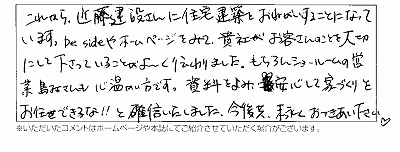 これから、近藤建設さんに住宅建築をおねがいすることになって
います。be sideやホームページをみて、貴社がお客さんのことを大切
にして下さっていることがよ〜く伝わりました。もちろんショールームの営
業 島さんも心温かい方です。資料をよみ安心して家づくりを
お任せできるな!!と確信いたしました。今後共、末永くおつきあい下さい♡
※いただいたコメントはホームページや本誌にてご紹介させていただく場合がございます。